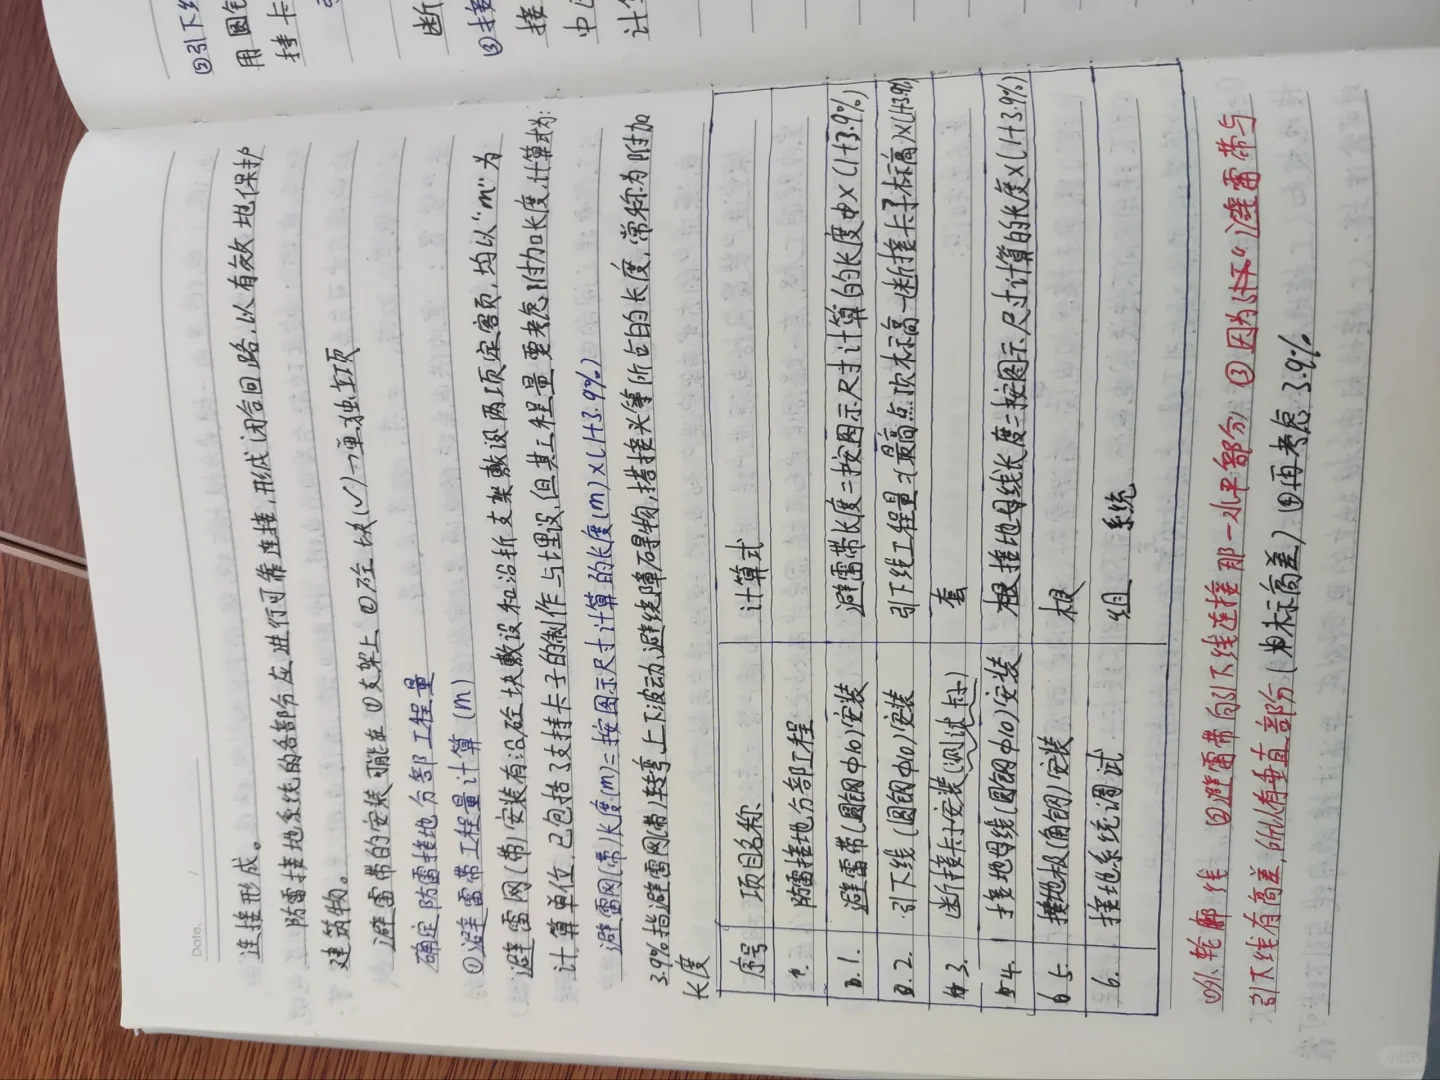 Data.
连接形成。
防雷接地系统的各部分应进行可靠连接,形成闭合回路,以有效地保护
建筑物。
避雷带的安装可能在①支架上②砼块(✓)→更独立项
确定防雷接地分部工程量
①避雷带工程量计算(m)
避雷网(带)安装有沿砼块敷设和沿折支架敷设两项定额项,均以"m"为
计算单位,已包括了支持卡子的制作与埋设,但其工程量要考虑附加长度,计算式为:
避雷网(带)长度(m)=按图示尺寸计算的长度(m)×(1+3.9%)
3.9%指避雷网(带)转弯、上下波动、避绕障碍物,搭接头等所占的长度,常称为附加
长度
序号 项目名称 计算式
防雷接地分部工程
1. 避雷带(圆钢Φ10)安装 避雷带长度=按图示尺寸计算的长度中×(1+3.9%)
2. 引下线(圆钢Φ10)安装 引下线工程量=(最高点顶标高-断接卡子标高)×(1+3.9%)
3. 断接卡子安装(测试卡子) 套
4. 接地母线(圆钢Φ10)安装 接地母线长度=按图示尺寸计算的长度×(1+3.9%)
5. 接地极(角钢)安装 根
6. 接地系统调试 组 系统
①外轮廓线 ②避雷带向引下线连接那一水平部分 ③因为 避雷带与
引下线有高差,所以有垂直部分( 标高差) ④再考虑3.9%
②引下线
用圆钢
持卡
断
③接
接
中
计算